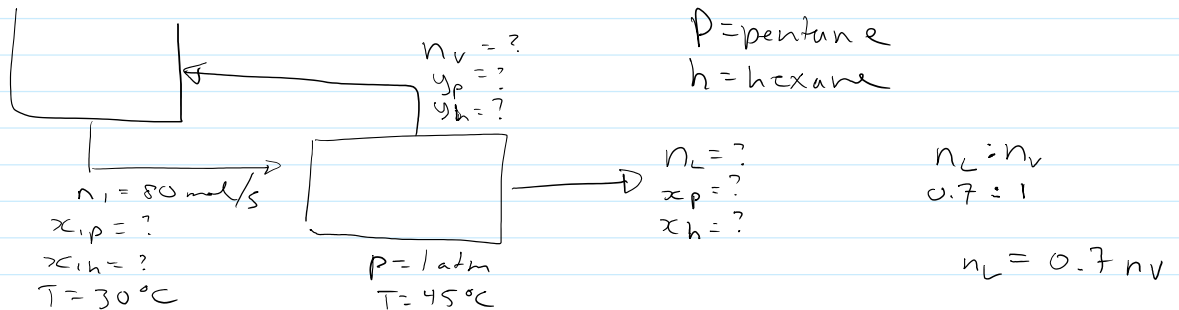 P = pentane
h = hexane
n_v = ?
y_p = ?
y_h = ?
n_1 = 80 mol/s
x_1p = ?
x_1h = ?
T = 30°C
p = 1 atm
T = 45°C
n_L = ?
x_p = ?
x_h = ?
n_L : n_v
0.7 : 1
n_L = 0.7 n_v